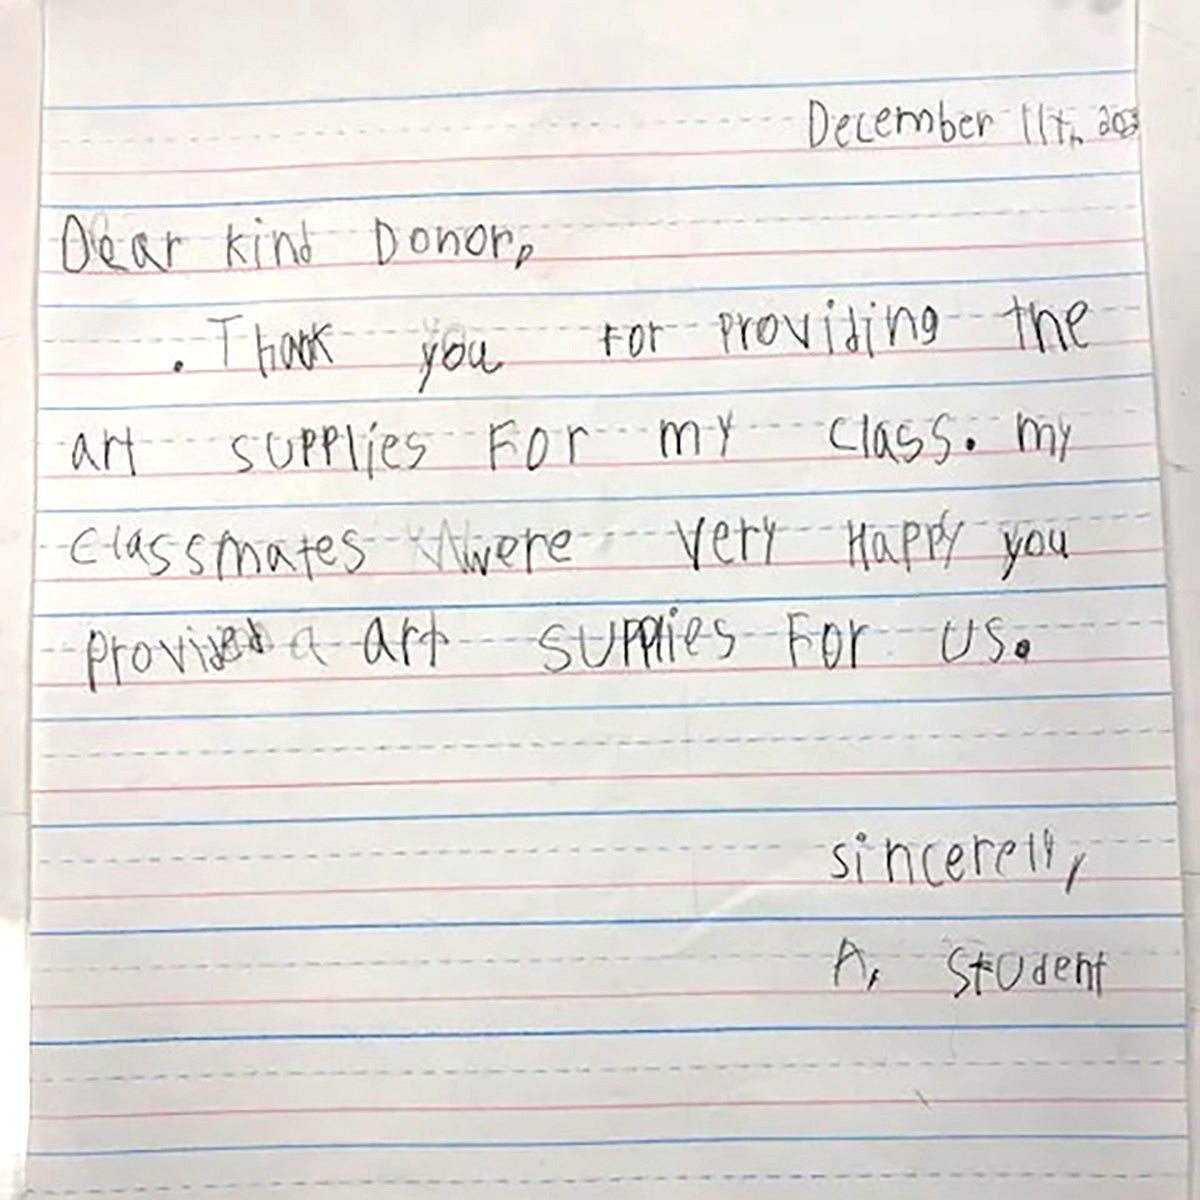 December 11th,
Dear kind Donor,
. Thank you for providing the
art supplies For my class. my
classmates were very Happy you
provided a art supplies For us.
sincerely,
A, Student